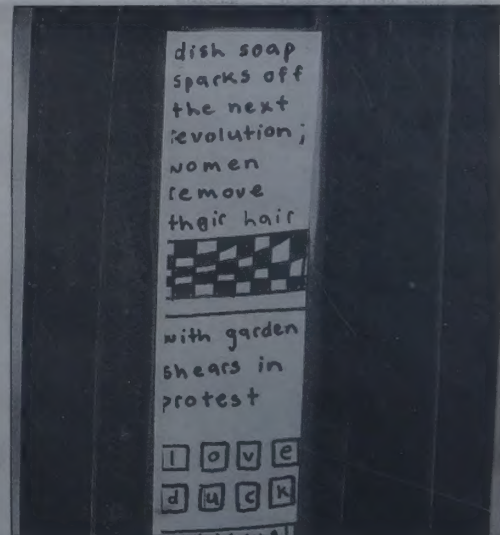 dish soap
sparks off
the next
revolution;
women
remove
their hair
with garden
shears in
protest
love
duck